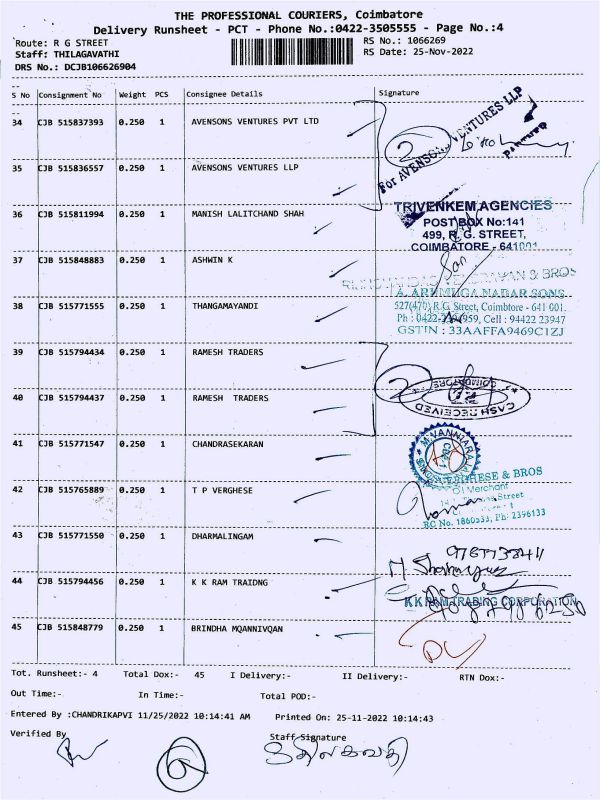 THE PROFESSIONAL COURIERS, Coimbatore
Delivery Runsheet - PCT - Phone No.:0422-3505555 - Page No.:4
Route: R G STREET
RS No.: 1066269
Staff: THILAGAVATHI
RS Date: 25-Nov-2022
DRS No.: DCJB106626904
S No Consignment No Weight PCS Consignee Details Signature
34 CJB 515837393 0.250 1 AVENSONS VENTURES PVT LTD
2
For AVENSONS VENTURES LLP
PARTNER
35 CJB 515836557 0.250 1 AVENSONS VENTURES LLP
36 CJB 515811994 0.250 1 MANISH LALITCHAND SHAH
TRIVENKEM AGENCIES
POST BOX No:141
499, R. G. STREET,
COIMBATORE - 641001
37 CJB 515848883 0.250 1 ASHWIN K
& BROS
A. ARUMUGA NADAR SONS
38 CJB 515771555 0.250 1 THANGAMAYANDI
527(470) R.G. Street, Coimbtore - 641 001.
Cell : 94422 23947
GSTIN : 33AAFFA9469C1ZJ
39 CJB 515794434 0.250 1 RAMESH TRADERS
2
COIMBATORE
CASH RECEIVED
40 CJB 515794437 0.250 1 RAMESH TRADERS
41 CJB 515771547 0.250 1 CHANDRASEKARAN
42 CJB 515765889 0.250 1 T P VERGHESE
VERGHESE & BROS
Oil Merchant
Street
RC No. 1860533, Ph: 2396133
43 CJB 515771550 0.250 1 DHARMALINGAM
44 CJB 515794456 0.250 1 K K RAM TRAIDNG
K K RAM TRADING CORPORATION
45 CJB 515848779 0.250 1 BRINDHA MQANNIVQAN
DL
Tot. Runsheet:- 4 Total Dox:- 45 I Delivery:- II Delivery:- RTN Dox:-
Out Time:- In Time:- Total POD:-
Entered By :CHANDRIKAPVI 11/25/2022 10:14:41 AM Printed On: 25-11-2022 10:14:43
Verified By Staff Signature
6
திலகவதி